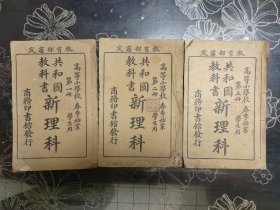 教育部審定
高等小學校 春季始業
第一冊 學生用
共和國教科書
新理科
商務印書館發行
教育部審定
高等小學校 春季始業
第二冊 學生用
共和國教科書
新理科
商務印書館發行
教育部審定
高等小學校 春季始業
學生用
共和國教科書
新理科
商務印書館發行